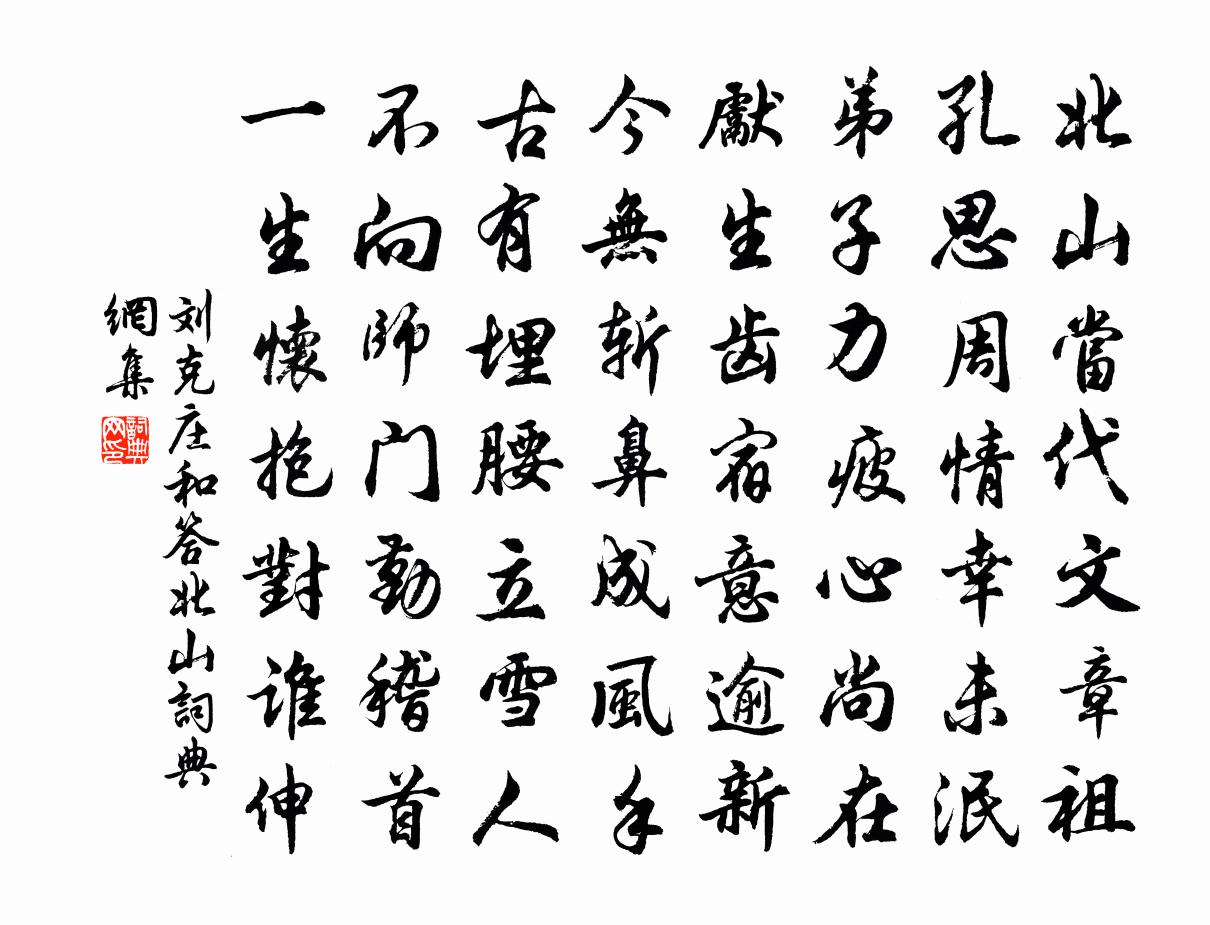 北山當代文章祖
孔思周情幸未泯
弟子力疲心尚在
獻生齿宿意逾新
今無斩鼻成風手
古有埋腰立雪人
不向師门勤稽首
一生懷抱對谁伸
刘克庄和答北山詞典
網集
詞典
网印